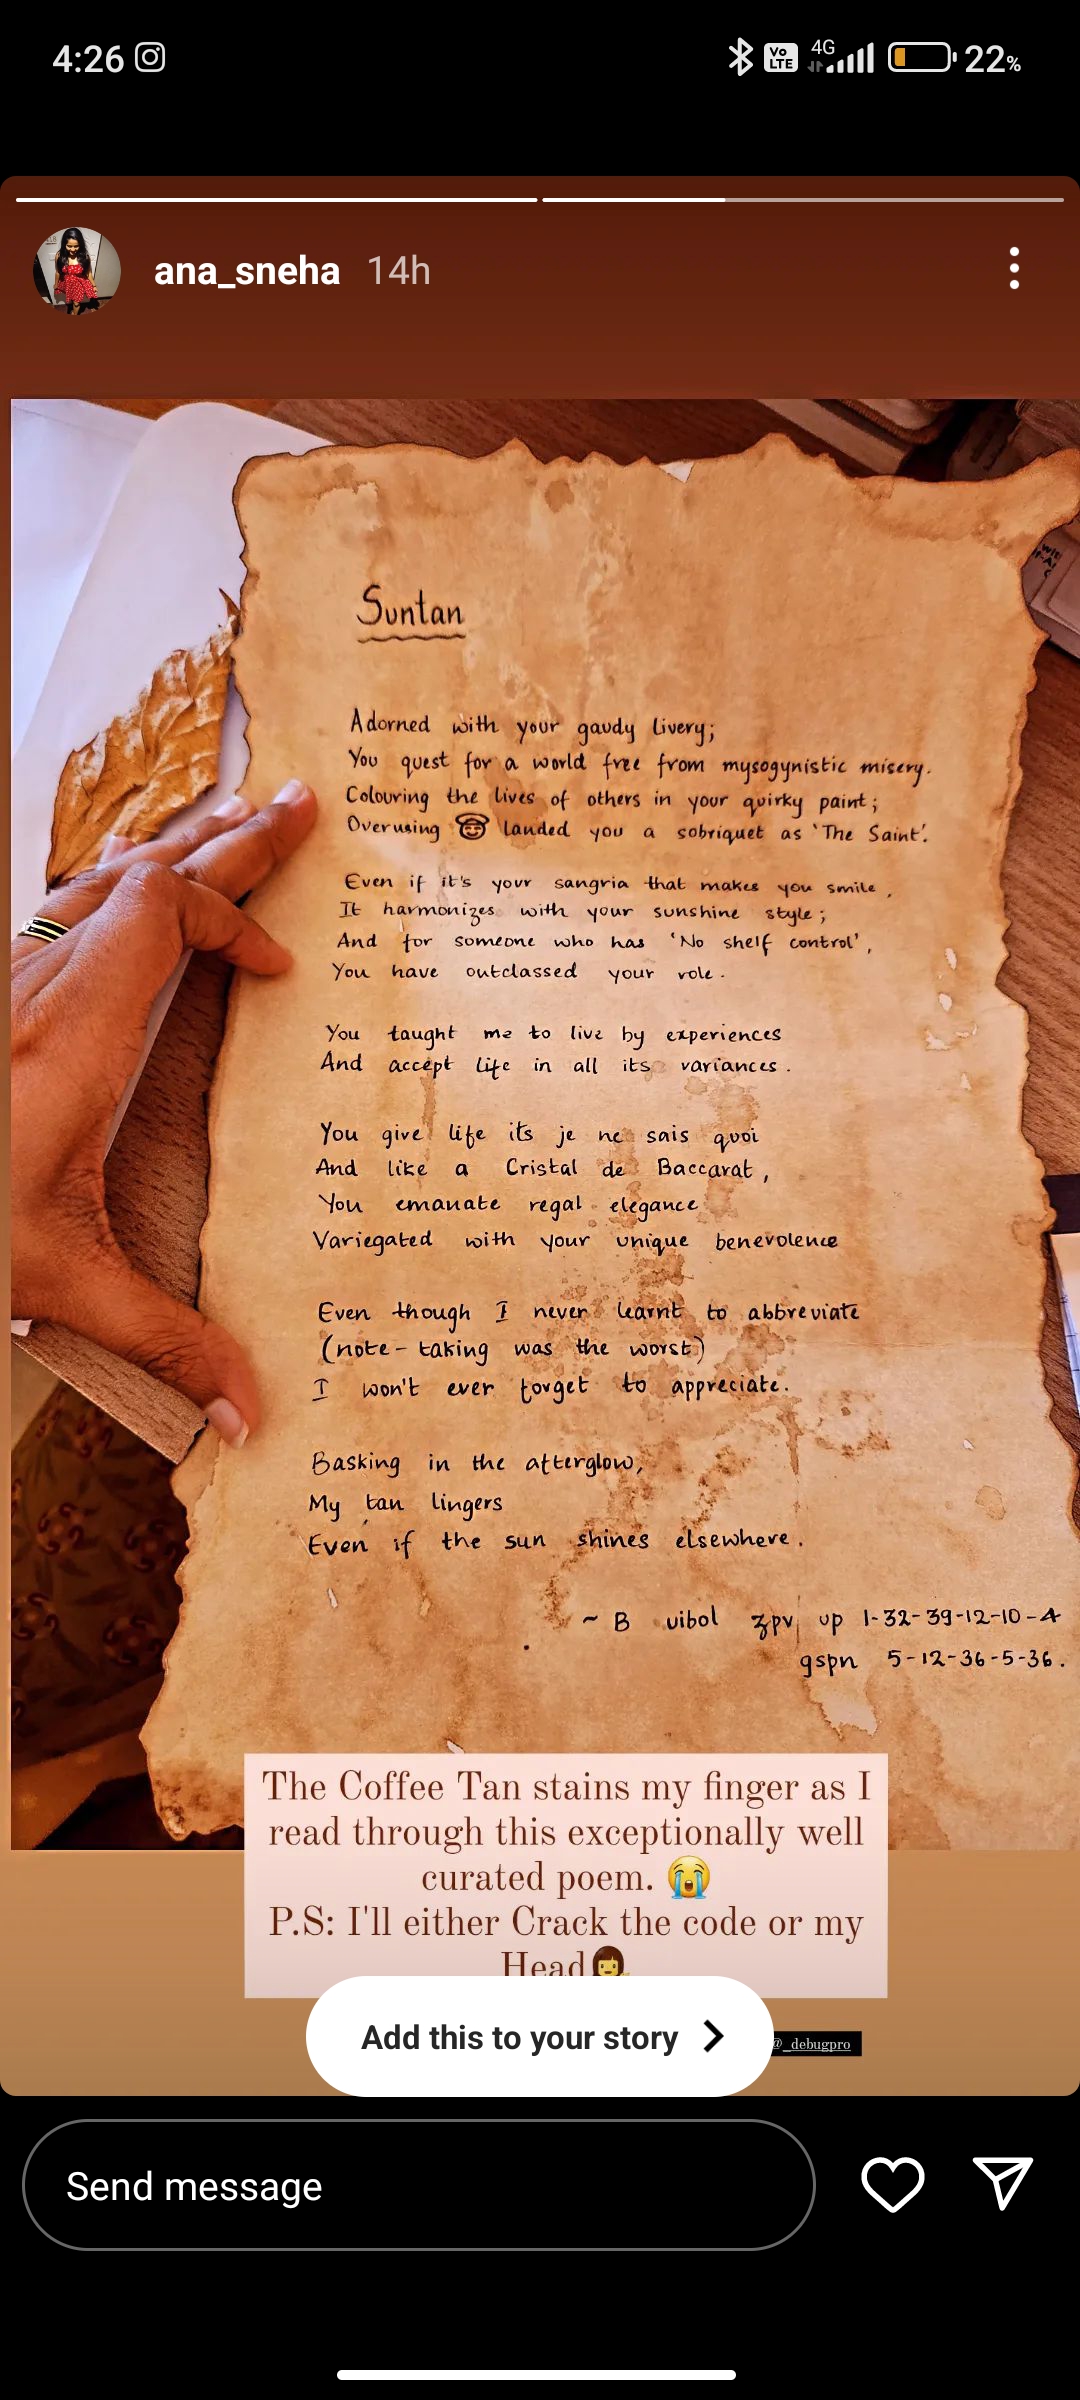 4:26
Vo LTE 4G 22%
ana_sneha 14h
Suntan
Adorned with your gaudy livery;
You quest for a world free from mysogynistic misery.
Colouring the lives of others in your quirky paint;
Overusing 😇 landed you a sobriquet as 'The Saint'.
Even if it's your sangria that makes you smile,
It harmonizes with your sunshine style;
And for someone who has 'No shelf control',
You have outclassed your role.
You taught me to live by experiences
And accept life in all its variances.
You give life its je ne sais quoi
And like a Cristal de Baccarat,
You emanate regal elegance
Variegated with your unique benevolence
Even though I never learnt to abbreviate
(note-taking was the worst)
I won't ever forget to appreciate.
Basking in the afterglow,
My tan lingers
Even if the sun shines elsewhere.
~ B uibol zpv up 1-32-39-12-10-4
gspn 5-12-36-5-36.
The Coffee Tan stains my finger as I
read through this exceptionally well
curated poem. 😭
P.S: I'll either Crack the code or my
Head
Add this to your story
@_debugpro
Send message